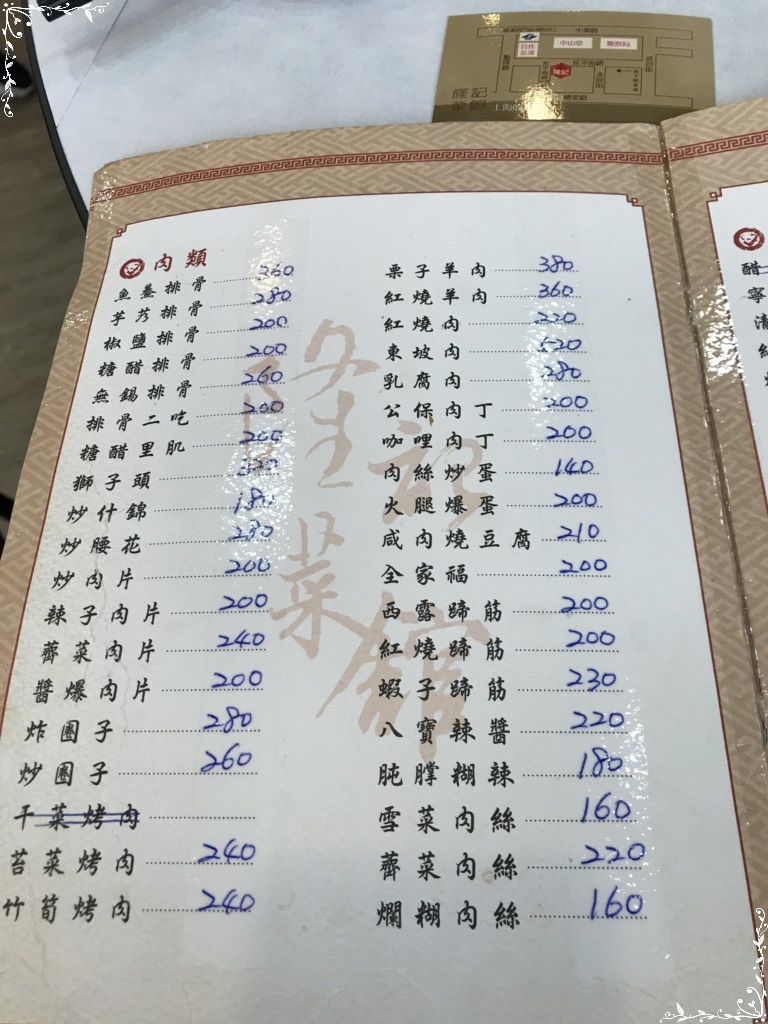 中山堂
隆記
隆記
菜館
肉類
魚羹排骨 360
芋艿排骨 280
椒鹽排骨 200
糖醋排骨 200
無錫排骨 260
排骨二吃 200
糖醋里肌 200
獅子頭 320
炒什錦 180
炒腰花 280
炒肉片 200
辣子肉片 200
薺菜肉片 240
醬爆肉片 200
炸圈子 280
炒圈子 260
干菜烤肉
苔菜烤肉 240
竹筍烤肉 240
栗子羊肉 380
紅燒羊肉 360
紅燒肉 220
東坡肉 520
乳腐肉 280
公保肉丁 200
咖哩肉丁 200
肉絲炒蛋 140
火腿爆蛋 200
咸肉燒豆腐 210
全家福 200
西露蹄筋 200
紅燒蹄筋 200
蝦子蹄筋 230
八寶辣醬 220
肫膶糊辣 180
雪菜肉絲 160
薺菜肉絲 220
爛糊肉絲 160
隆記菜館
醋
寧